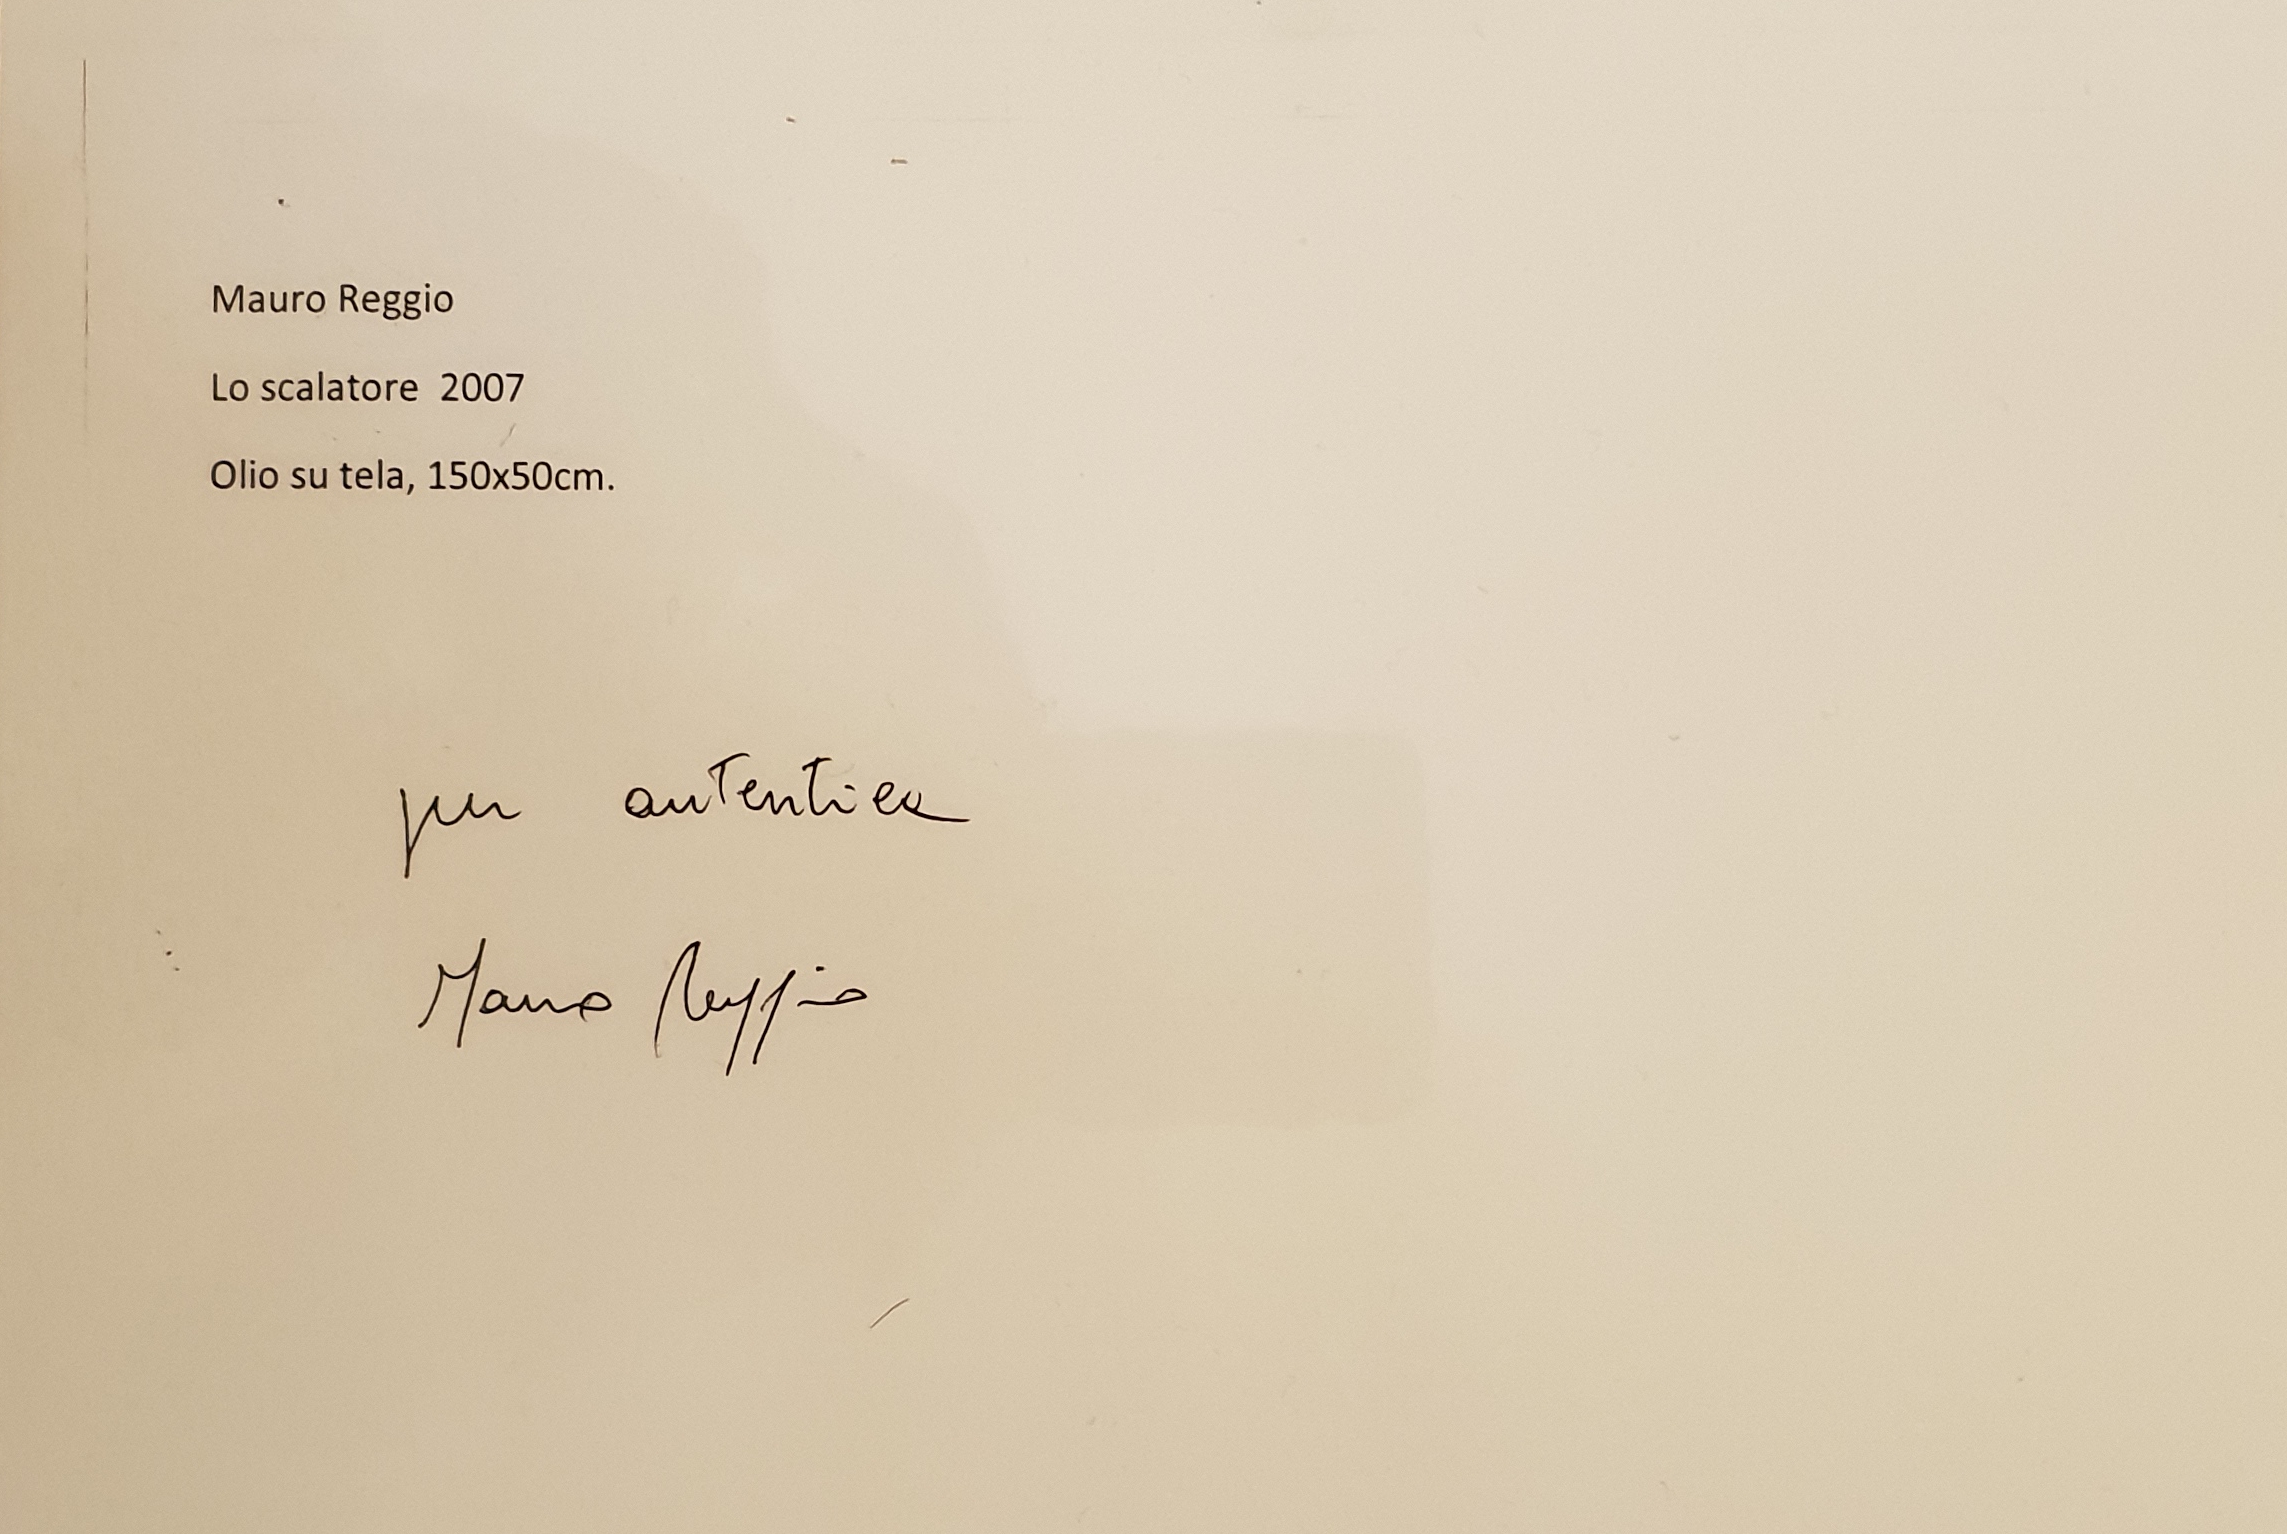 Mauro Reggio
Lo scalatore  2007
Olio su tela, 150x50cm.
per autentica
Mauro Reggio